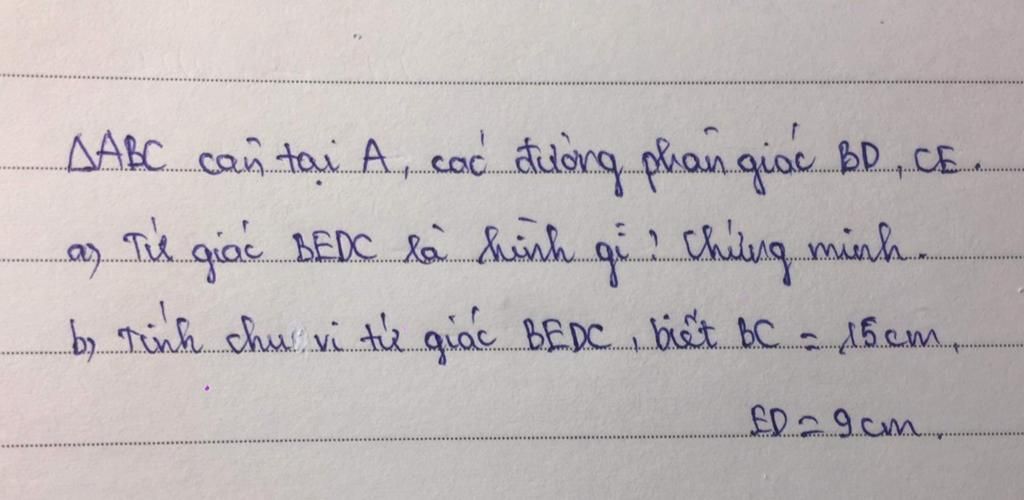 ΔABC cân tại A, các đường phân giác BD, CE.
a) Tứ giác BEDC là hình gì? Chứng minh.
b) Tính chu vi tứ giác BEDC, biết BC = 15cm,
ED = 9cm.